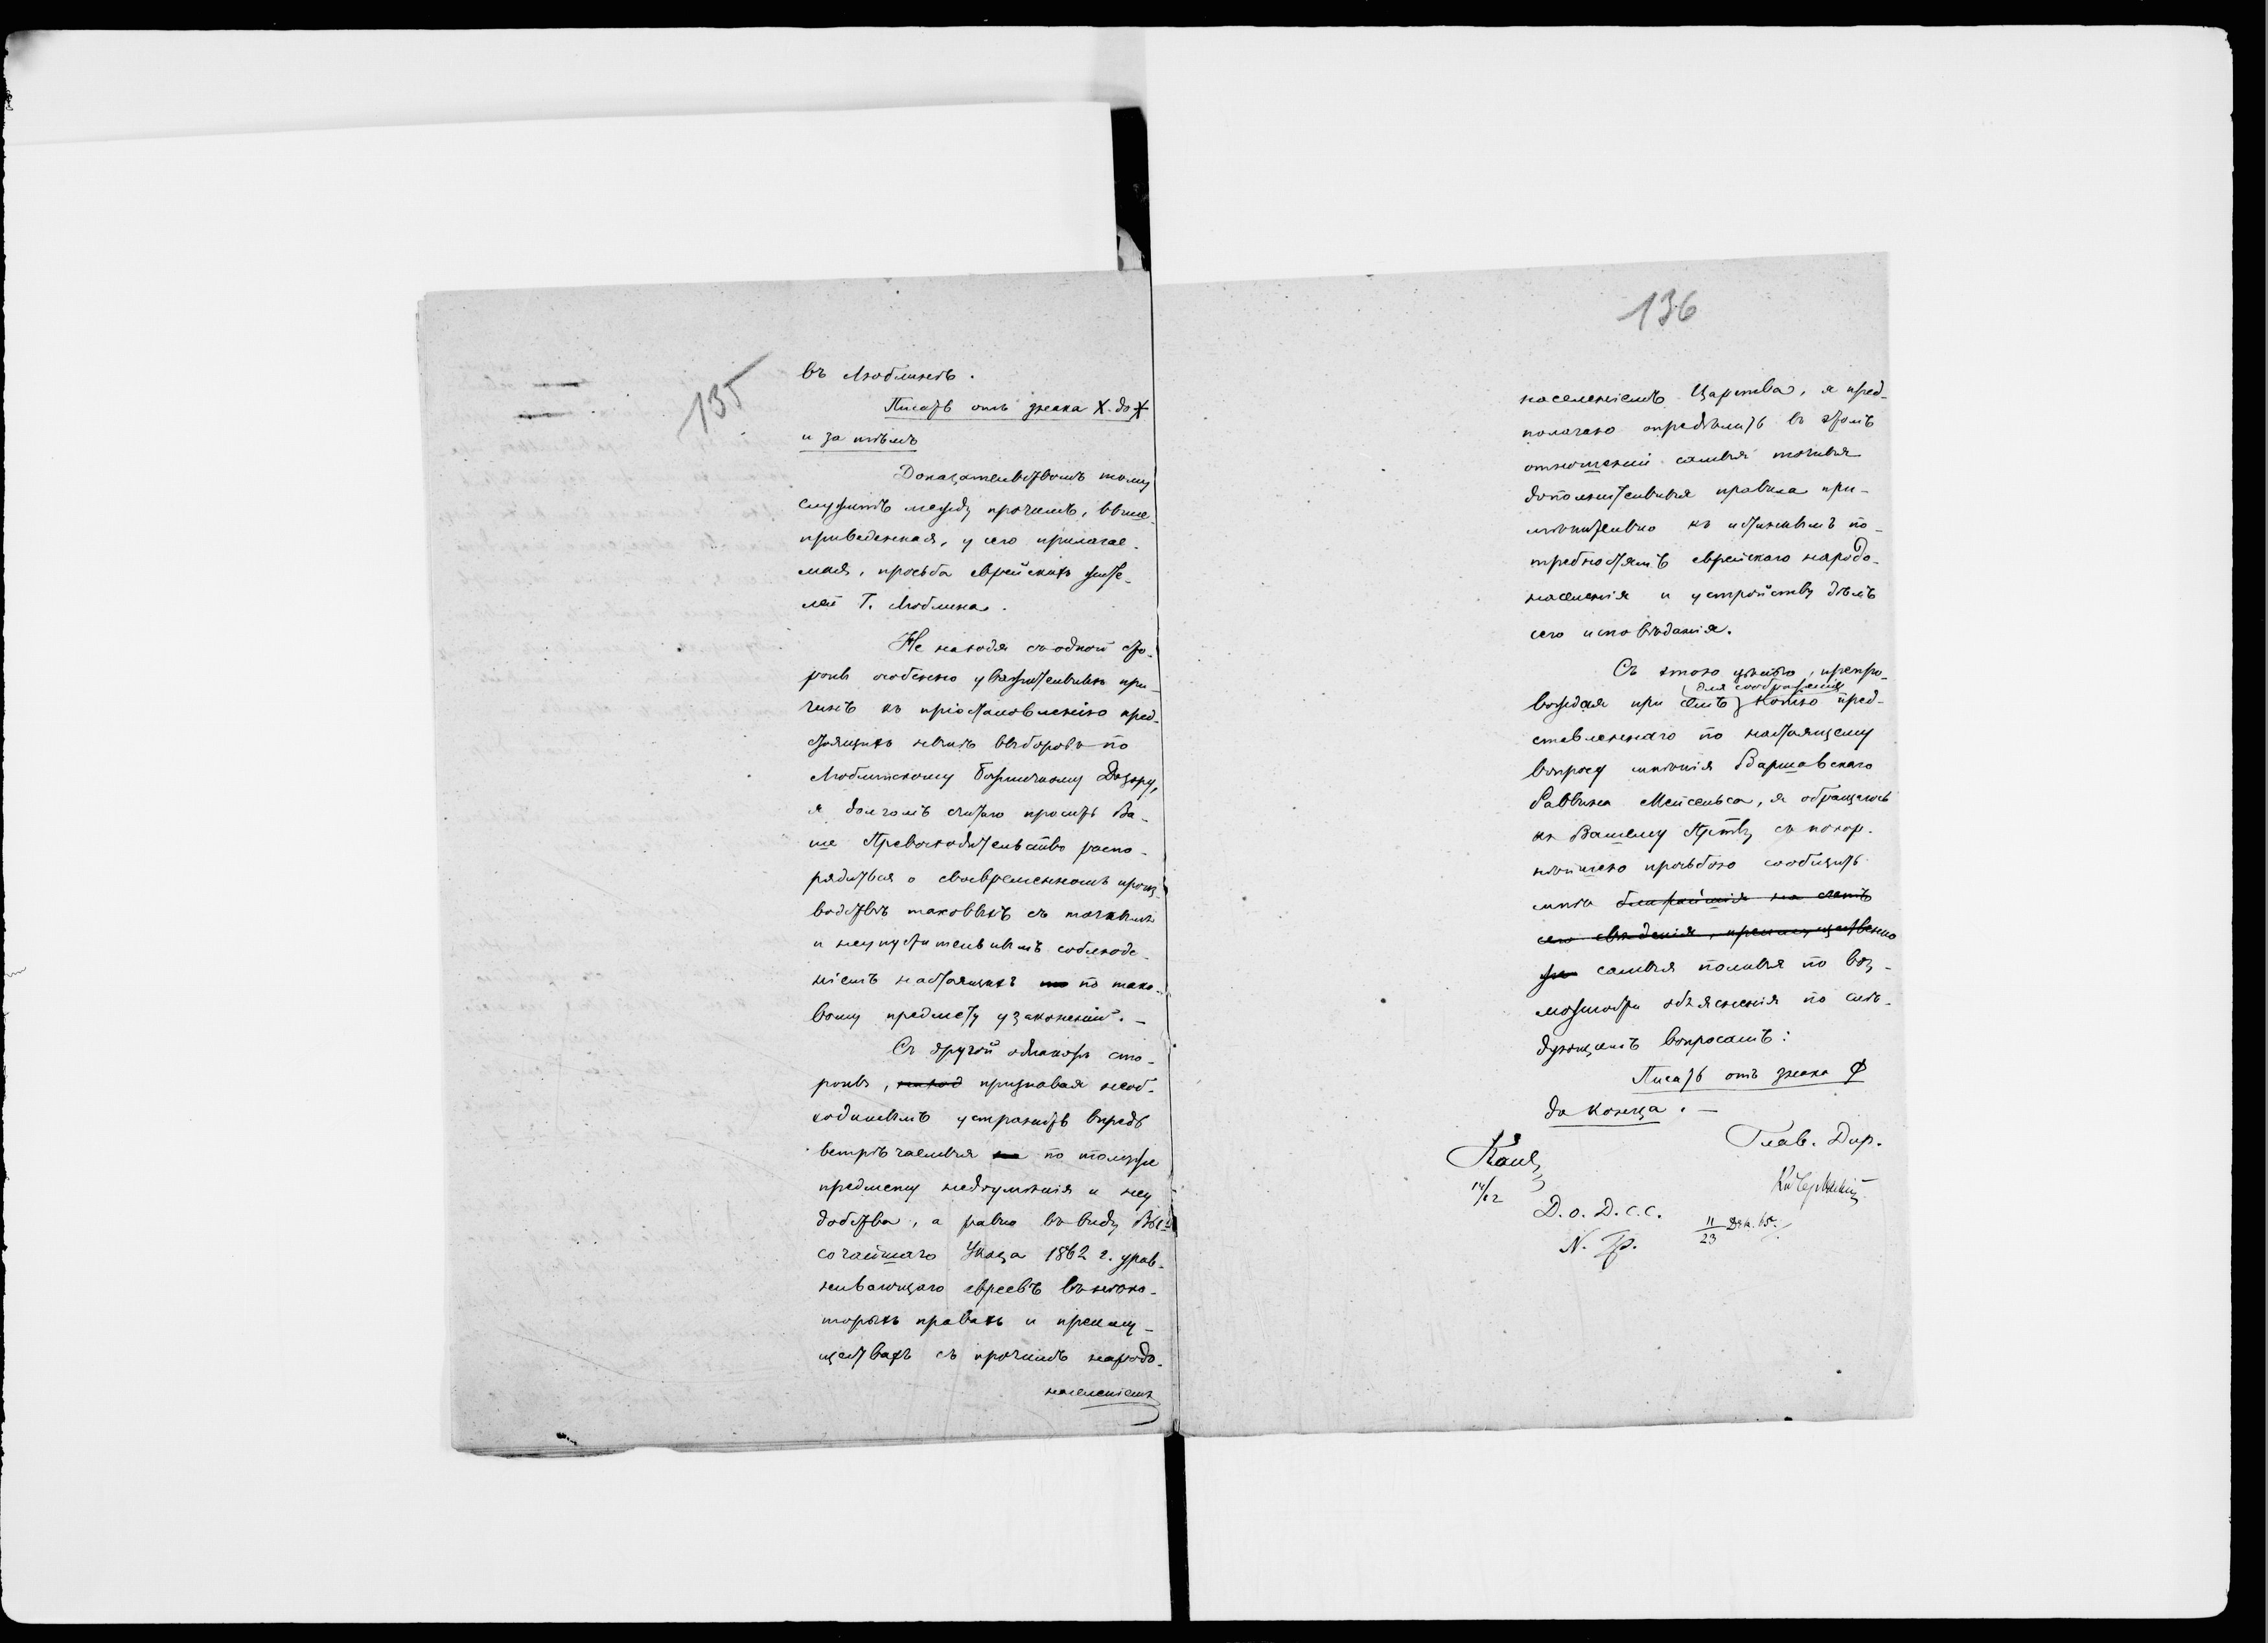 135
въ Люблинѣ.
Писать отъ знака X. до X
и за тѣмъ
Доказательствомъ тому
служитъ между прочимъ, выше-
приведенная, у сего прилагае-
мая, просьба еврейскихъ жите-
лей Г. Люблина.
Не находя съ одной сто-
роны особенно уважительныхъ при-
чинъ къ пріостановленію пред-
стоящихъ нынѣ выборовъ по
Люблинскому Божничному Дозору,
я долгомъ считаю просить Ва-
ше Превосходительство распо-
рядиться о своевременномъ произ-
водствѣ таковыхъ съ точнымъ
и неупустительнымъ соблюде-
ніемъ настоящихъ по тако-
вому предмету узаконеній. —
Съ другой однакожъ сто-
роны, наход признавая необ-
ходимымъ устранить впредь
встрѣчаемыя на по томуже
предмету недоумѣнія и неу
добства, а равно въ виду Вы-
сочайшаго Указа 1862 г. урав-
нивающаго евреевъ въ нѣко-
торыхъ правахъ и преиму-
ществахъ съ прочимъ народо-
населеніемъ
136
населеніемъ Царства, я пред-
полагаю опредѣлить въ этомъ
отношеніи самыя точныя
дополнительныя правила при-
мѣнительно къ истиннымъ по-
требностямъ еврейскаго народо-
населенія и устройству дѣлъ
сего исповѣданія.
Съ этою цѣлью, препро-
для соображенія
вождая при семъ копію пред-
ставленнаго по настоящему
вопросу мнѣнія Варшавскаго
Раввина Мейсельса, я обращаюсь
къ Вашему Прству съ покор-
нѣйшею просьбою сообщить
мнѣ ближайшія на счетъ
сего свѣденія, преимущественно
же самыя полныя по воз-
можности объясненія по слѣ-
дующимъ вопросамъ:
Писать отъ знака ф
до конца. —
Глав. Дир.
14/12
Д. о. Д. С. С.
11/23 Дек. 65.
N. Тр.